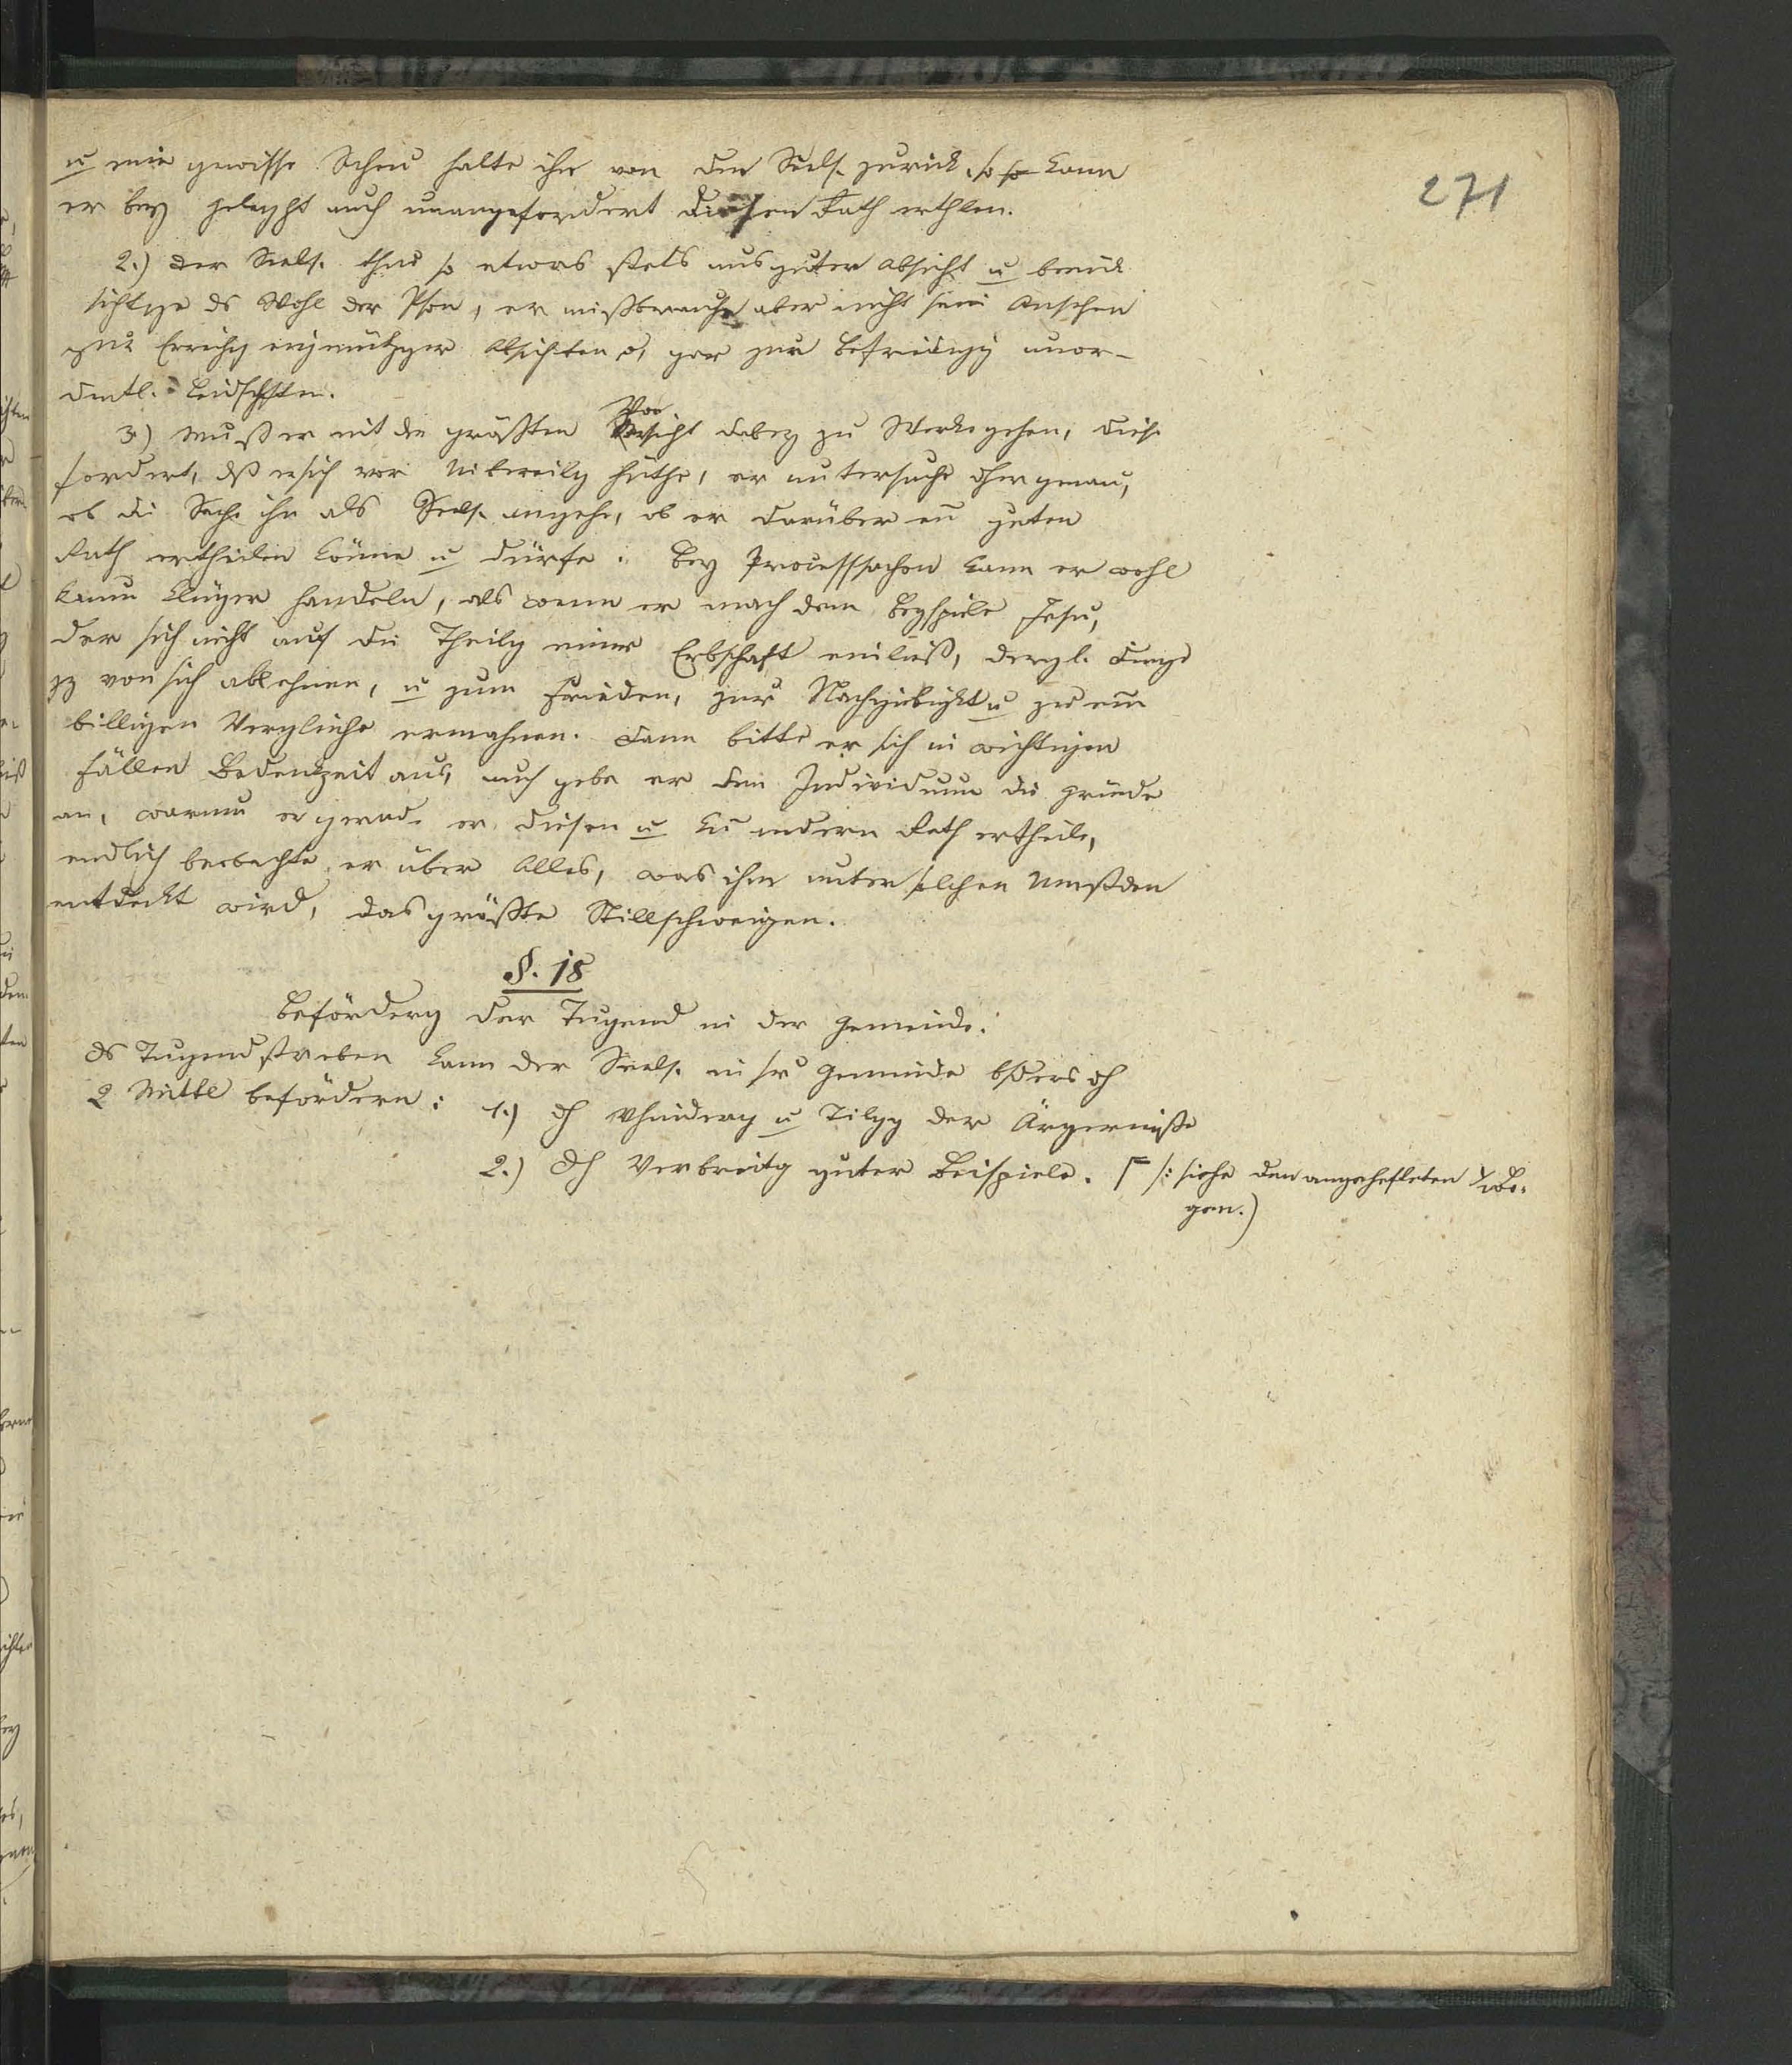 271
u eine gewisse Scheu halte ihn von dem Seels. zurück, so kann
er bey geleght auch unangefordert diesen Rath erthlen.
2.) Der Seels. thue so etwas stets aus guter Absicht u berück
sichtge ds Wohl der Pson, er mißbrauche aber nicht sein Ansehen
zur Errichg eigennützger Absichten od gar zur Befriedigg unor-
dentl. Leidschften.
3.) muß er mit der größten Vorsicht dabey zu Werke gehen, diese
fordert, dß er sich vor Uibereilg hüthe, er untersuche eher genau,
ob die Sache ihn als Seels. angehe, ob er darüber ein guten
Rath ertheilen könne u dürfe: bey Processsachen kann er wohl
kaum klüger handeln, als wenn er nach dem Beyspiele Jesu,
der sich nicht auf die Theilg einer Erbschaft einließ, dergl. Dinge
gz von sich ablehnen, u zum Frieden, zur Nachgiebigkt u zu ein
billigen Vergleiche ermahnen. Dann bitte er sich in wichtigen
Fällen Bedenkzeit aus, auch gebe er dem Individuum die Gründe
an, warum er gerade diesen u kein andern Rath ertheile,
endlich beobachte er über Alles, was ihm unter solchen Umstden
entdeckt wird, das größte Stillschweigen.
§. 18
Beförderg der Tugend in der Gemeinde.
ds Tugendstreben kann der Seels. in sr Gemeinde bsders dch
2 Mittel befördern: 1.) dch Vhinderg u Tilgg der Ärgerniße
2.) dch Verbreitg guter Beispiele. /: siehe den angehefteten Bo-
gen.)